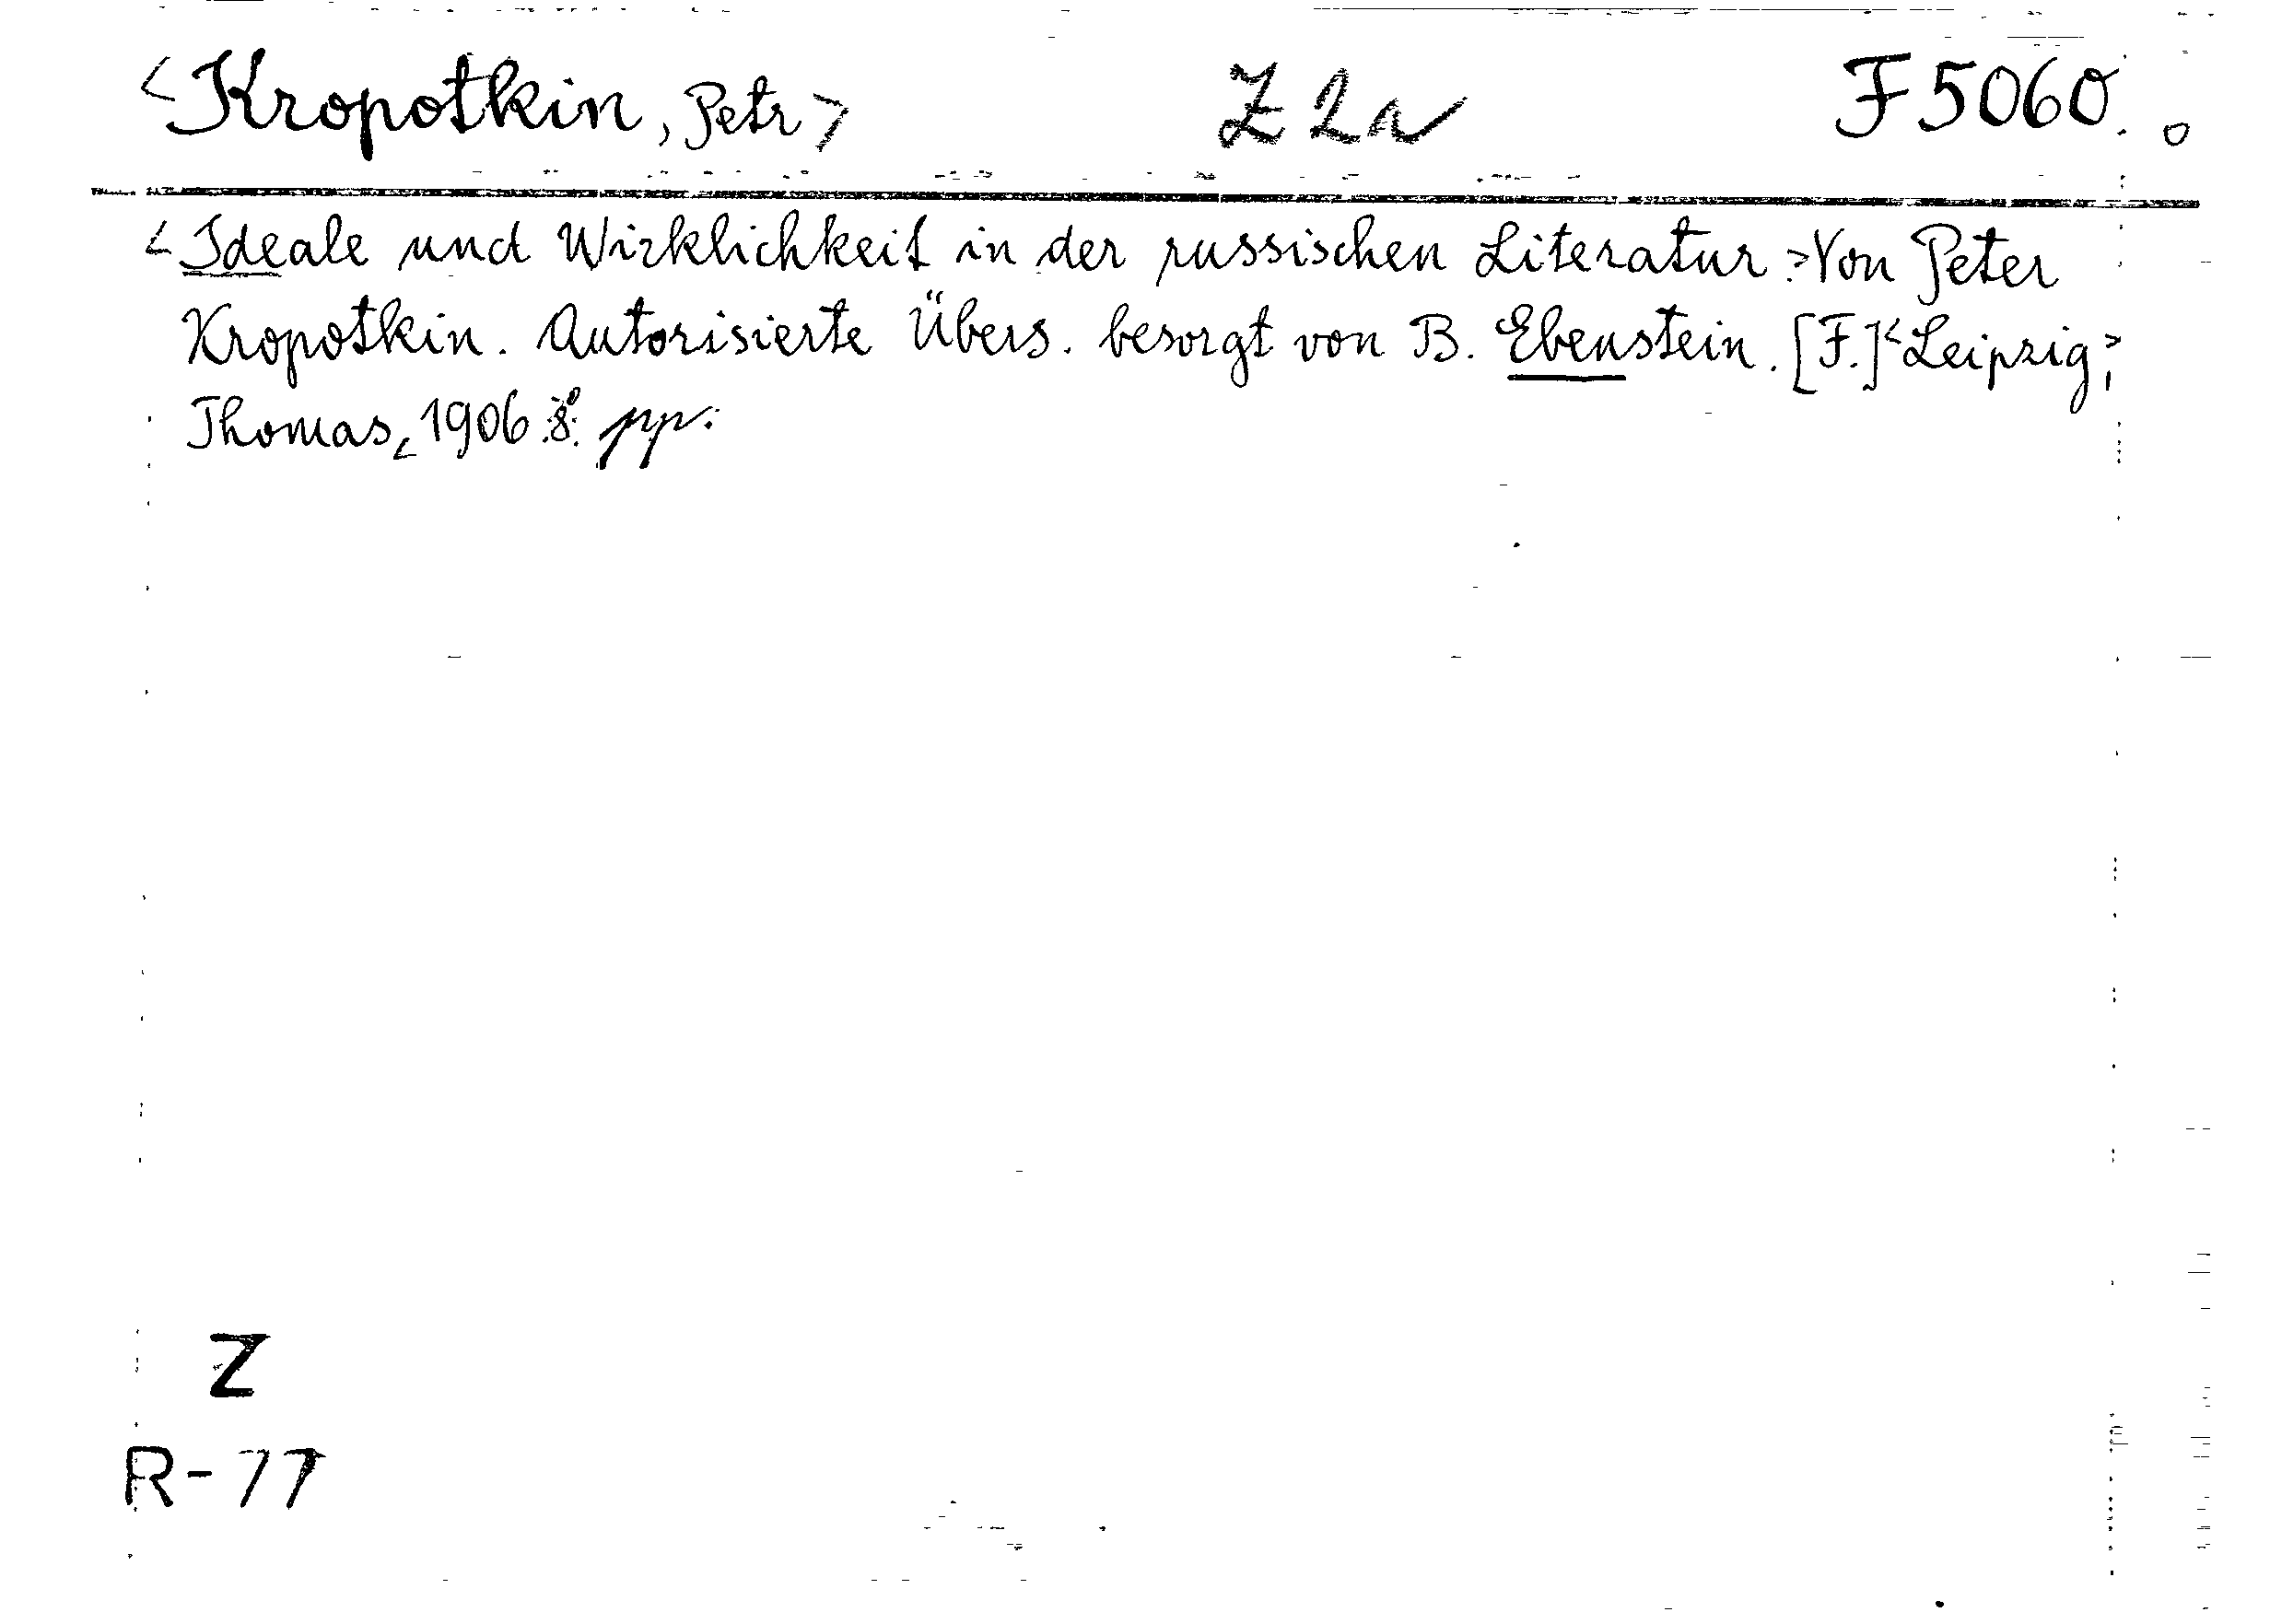 <Kropotkin, Petr> Z 2a F 5060.
<Ideale und Wirklichkeit in der russischen Literatur.> Von Peter
Kropotkin. Autorisierte Übers. besorgt von B. Ebenstein. [F.] <Leipzig,>
Thomas, <1906. 8°. pp.
Z
R-77